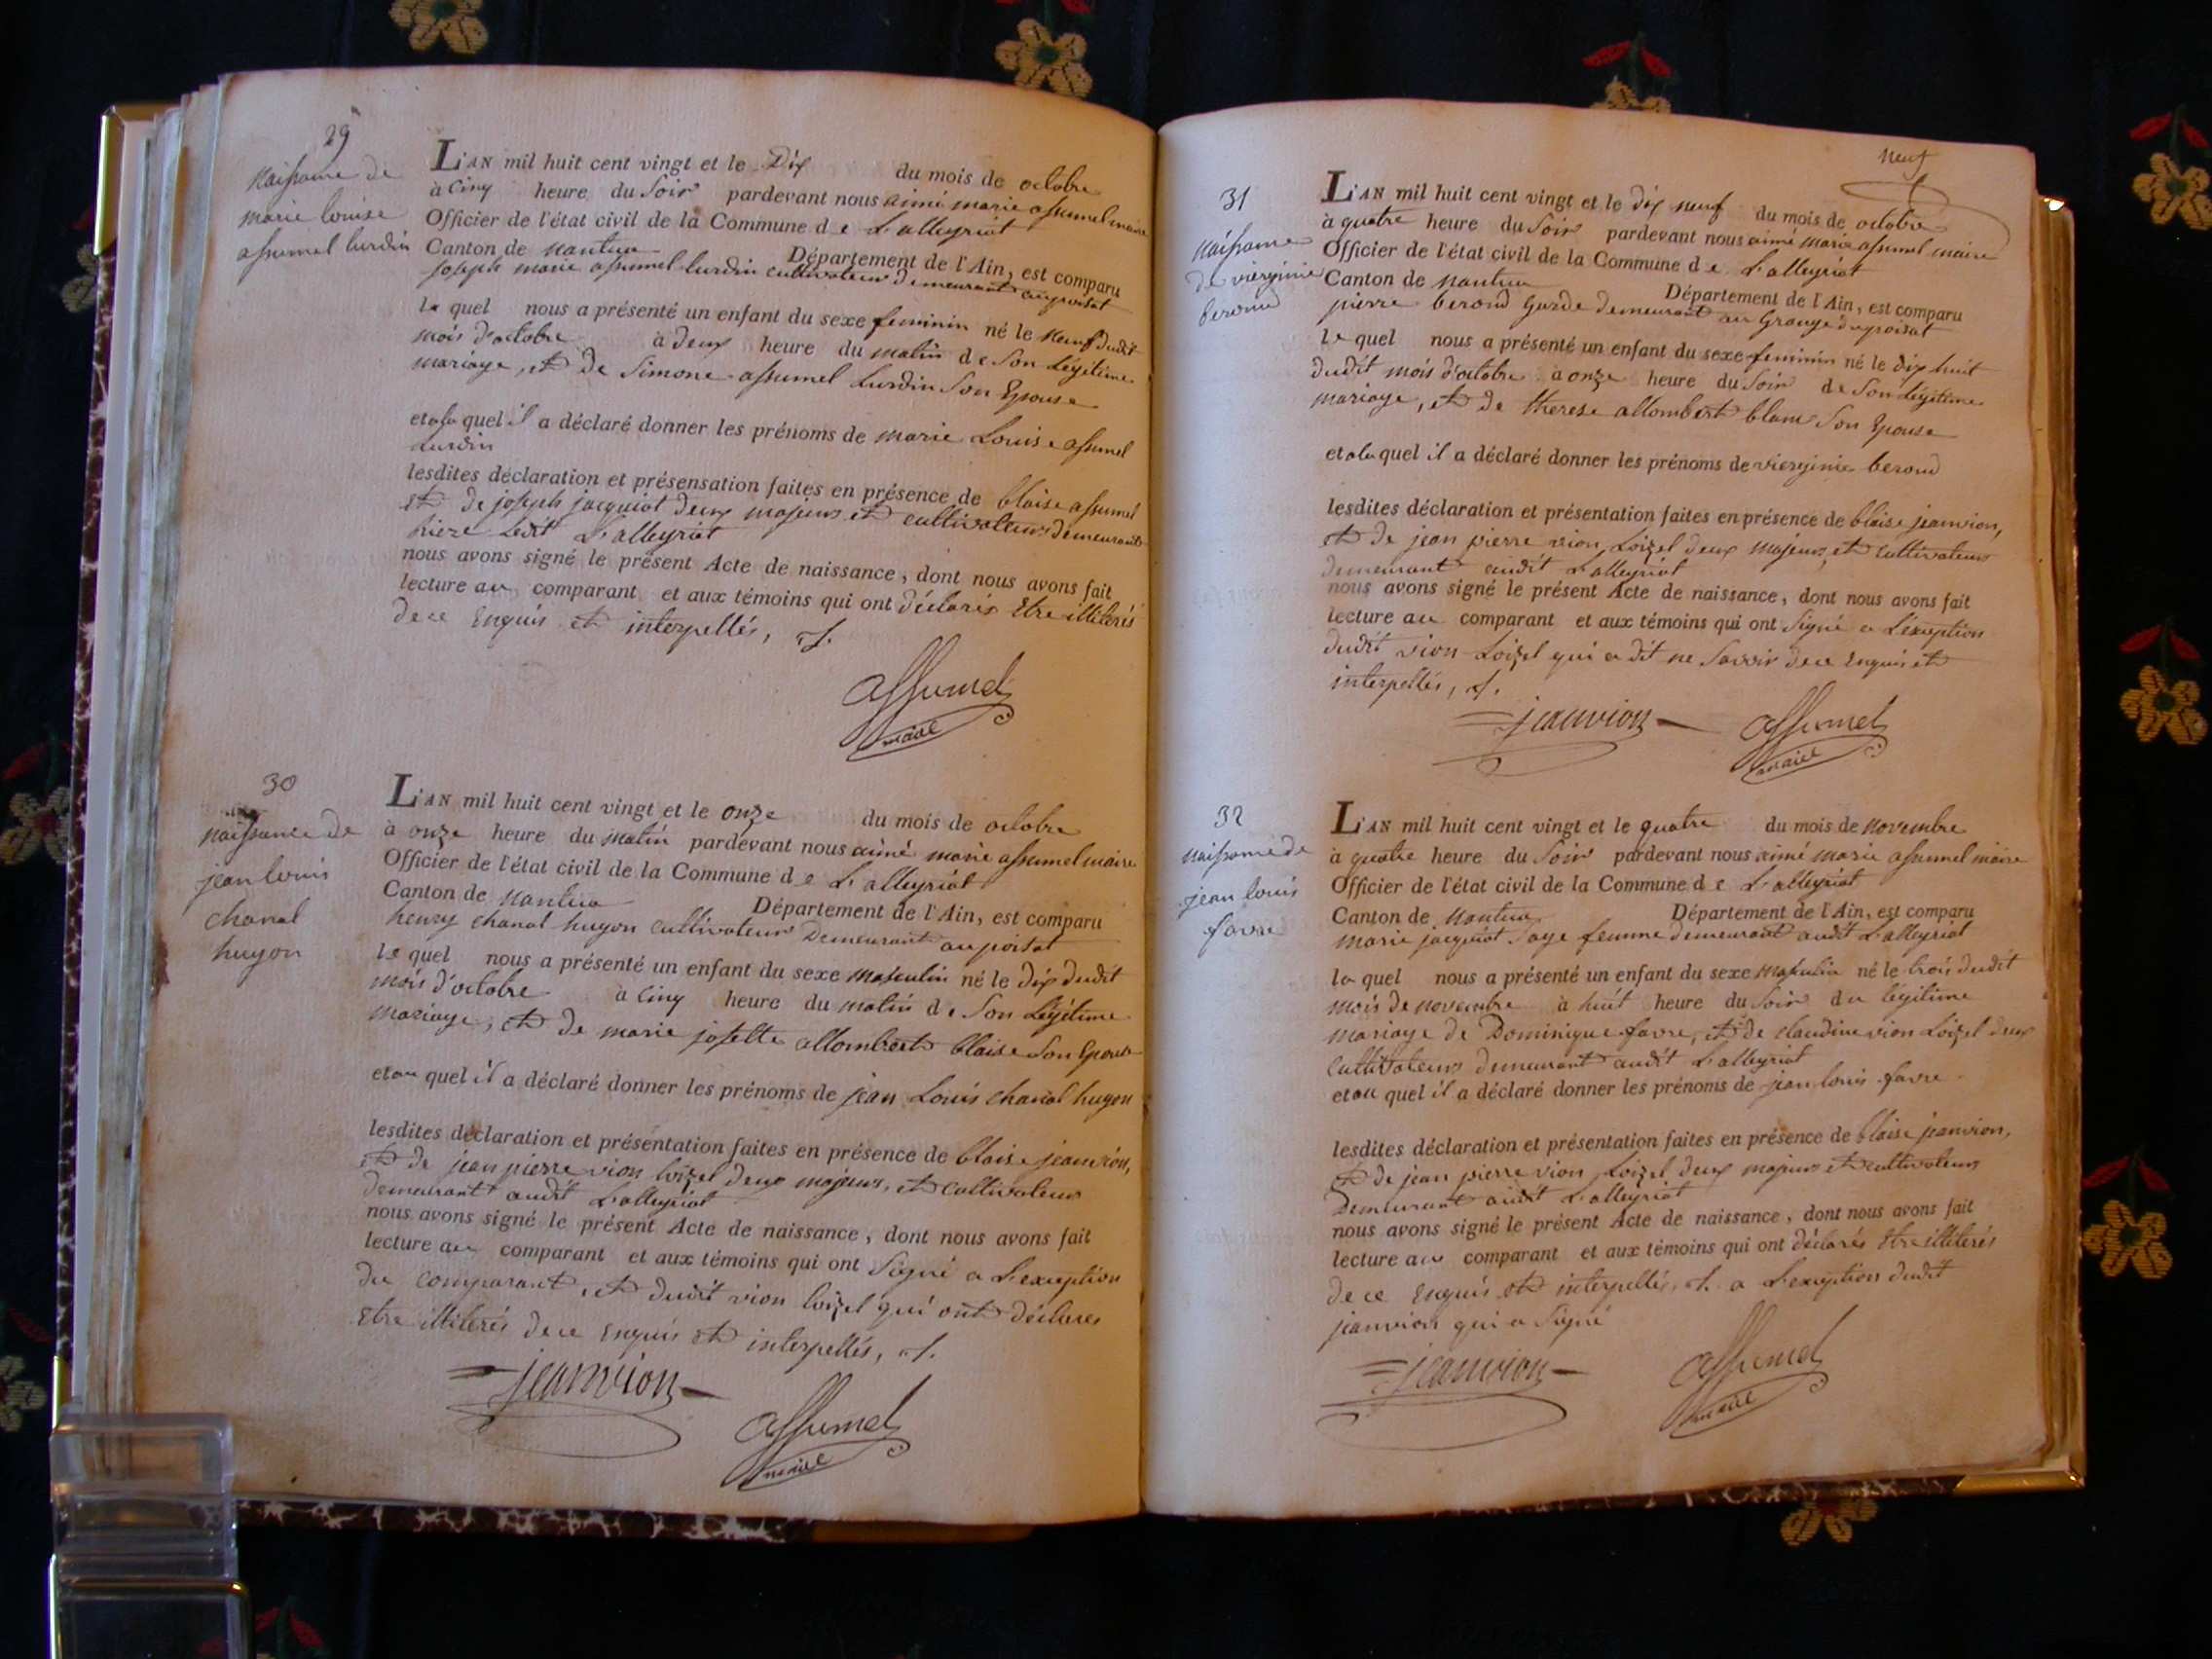 29
naissance de
marie louise
assumel lurdin
L'AN mil huit cent vingt et le Dix du mois de octobre
à Cinq heure du Soir pardevant nous aimé marie assumel maire
Officier de l'état civil de la Commune d e L'alleyriat
Canton de nantua Département de l'Ain, est comparu
joseph marie assumel lurdin cultivateur demeurant au poisat
le quel nous a présenté un enfant du sexe feminin né le neuf dudit
mois d'octobre à deux heure du matin de Son Légitime
mariage, et de Simone assumel Lurdin Son Epouse
et ala quel il a déclaré donner les prénoms de marie Louise assumel
Lurdin
lesdites déclaration et présensation faites en présence de blaise assumel
et de joseph jacquiot deux majeurs et cultivateurs demeurants
L'alleyriat
nous avons signé le présent Acte de naissance, dont nous avons fait
lecture au comparant et aux témoins qui ont déclarés Etre illiterés
de ce Enquis et interpellés, ./.
assumel
maire
30
naissance de
jean louis
chanal
hugon
L'AN mil huit cent vingt et le onze du mois de octobre
à onze heure du matin pardevant nous aimé marie assumel maire
Officier de l'état civil de la Commune d e L'alleyriat
Canton de nantua Département de l'Ain, est comparu
henry chanal hugon cultivateur Demeurant au poisat
le quel nous a présenté un enfant du sexe masculin né le dix dudit
mois d'octobre à Cinq heure du matin de Son Légitime
mariage, et de marie josette allombert blaise Son Epouse
et au quel il a déclaré donner les prénoms de jean Louis chanal hugon
lesdites déclaration et présentation faites en présence de blaise jeanvion,
et de jean pierre vion loizel deux majeurs, et cultivateurs
demeurant audit L'alleyriat
nous avons signé le présent Acte de naissance, dont nous avons fait
lecture au comparant et aux témoins qui ont Signé a L'exeption
du comparant, et dudit vion loizel qui ont déclarés
Etre illiterés de ce Enquis et interpellés, ./.
jeanvion
assumel
maire
neuf
31
naissance
de vierginie
beroud
L'AN mil huit cent vingt et le dix neuf du mois de octobre
à quatre heure du Soir pardevant nous aimé marie assumel maire
Officier de l'état civil de la Commune d e L'alleyriat
Canton de nantua Département de l'Ain, est comparu
pierre beroud garde demeurant au Grange du poisat
le quel nous a présenté un enfant du sexe feminin né le dix huit
dudit mois d'octobre à onze heure du Soir de Son Légitime
mariage, et de therese allombert blanc Son Epouse
et ala quel il a déclaré donner les prénoms de vierginie beroud
lesdites déclaration et présentation faites en présence de blaise jeanvion,
et de jean pierre vion Loizel deux majeurs, et cultivateurs
demeurant audit L'alleyriat
nous avons signé le présent Acte de naissance, dont nous avons fait
lecture au comparant et aux témoins qui ont Signé a L'exeption
dudit vion Loizel qui a dit ne Savoir de ce Enquis et
interpellés, ./.
jeanvion assumel
maire
32
naissance de
jean louis
favre
L'AN mil huit cent vingt et le quatre du mois de novembre
à quatre heure du Soir pardevant nous aimé marie assumel maire
Officier de l'état civil de la Commune d e L'alleyriat
Canton de nantua Département de l'Ain, est comparu
marie jacquiot Sage femme demeurant audit L'alleyriat
la quel nous a présenté un enfant du sexe masculin né le trois dudit
mois de novembre à huit heure du Soir du légitime
mariage de Dominique favre, et de claudine vion Loizel deux
cultivateurs demeurant audit L'alleyriat
et au quel il a déclaré donner les prénoms de jean louis favre
lesdites déclaration et présentation faites en présence de blaise jeanvion,
et de jean pierre vion Loizel deux majeurs et cultivateurs
Demeurant audit L'alleyriat
nous avons signé le présent Acte de naissance, dont nous avons fait
lecture au comparant et aux témoins qui ont déclarés Etre illiterés
de ce Enquis et interpellés, ./. a L'exeption dudit
jeanvion qui a Signé
jeanvion assumel
maire